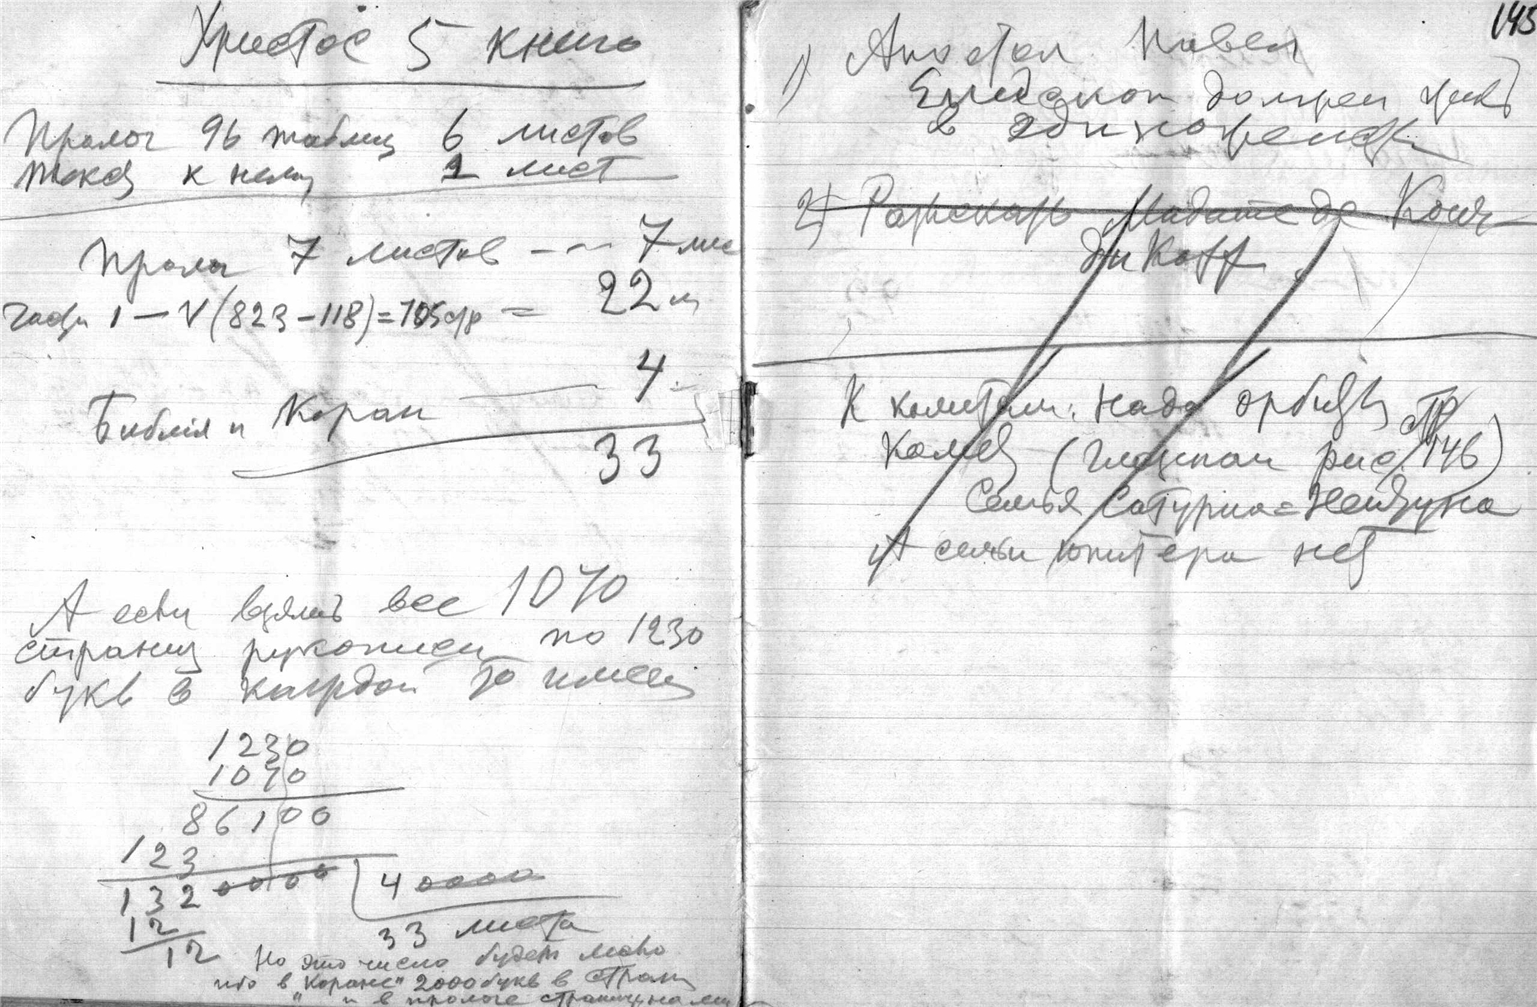 Христос 5 книга
Пролог 96 таблиц 6 листов
текст к нему 1 лист
Пролог 7 листов --- 7 лис
Части I — V (823-118)=705 стр = 22 л
Библия и Коран 4
33
А если взять все 1070
страниц рукописи по 1230
букв в каждой то имеем
1230
1070
86100
123
1320000 40000
12 33 листа
12
Но это число будет мало
ибо в Коране 2000 букв в стран
" и в прологе страниц на
145
1) Апостол Павел
Епископ должен жить
в
2) Рассказ Madame de
К кометам. Надо орбиту стр
Комет (глянь рис. 146)
Семья Сатурна = Нептуна
А семьи Юпитера нет